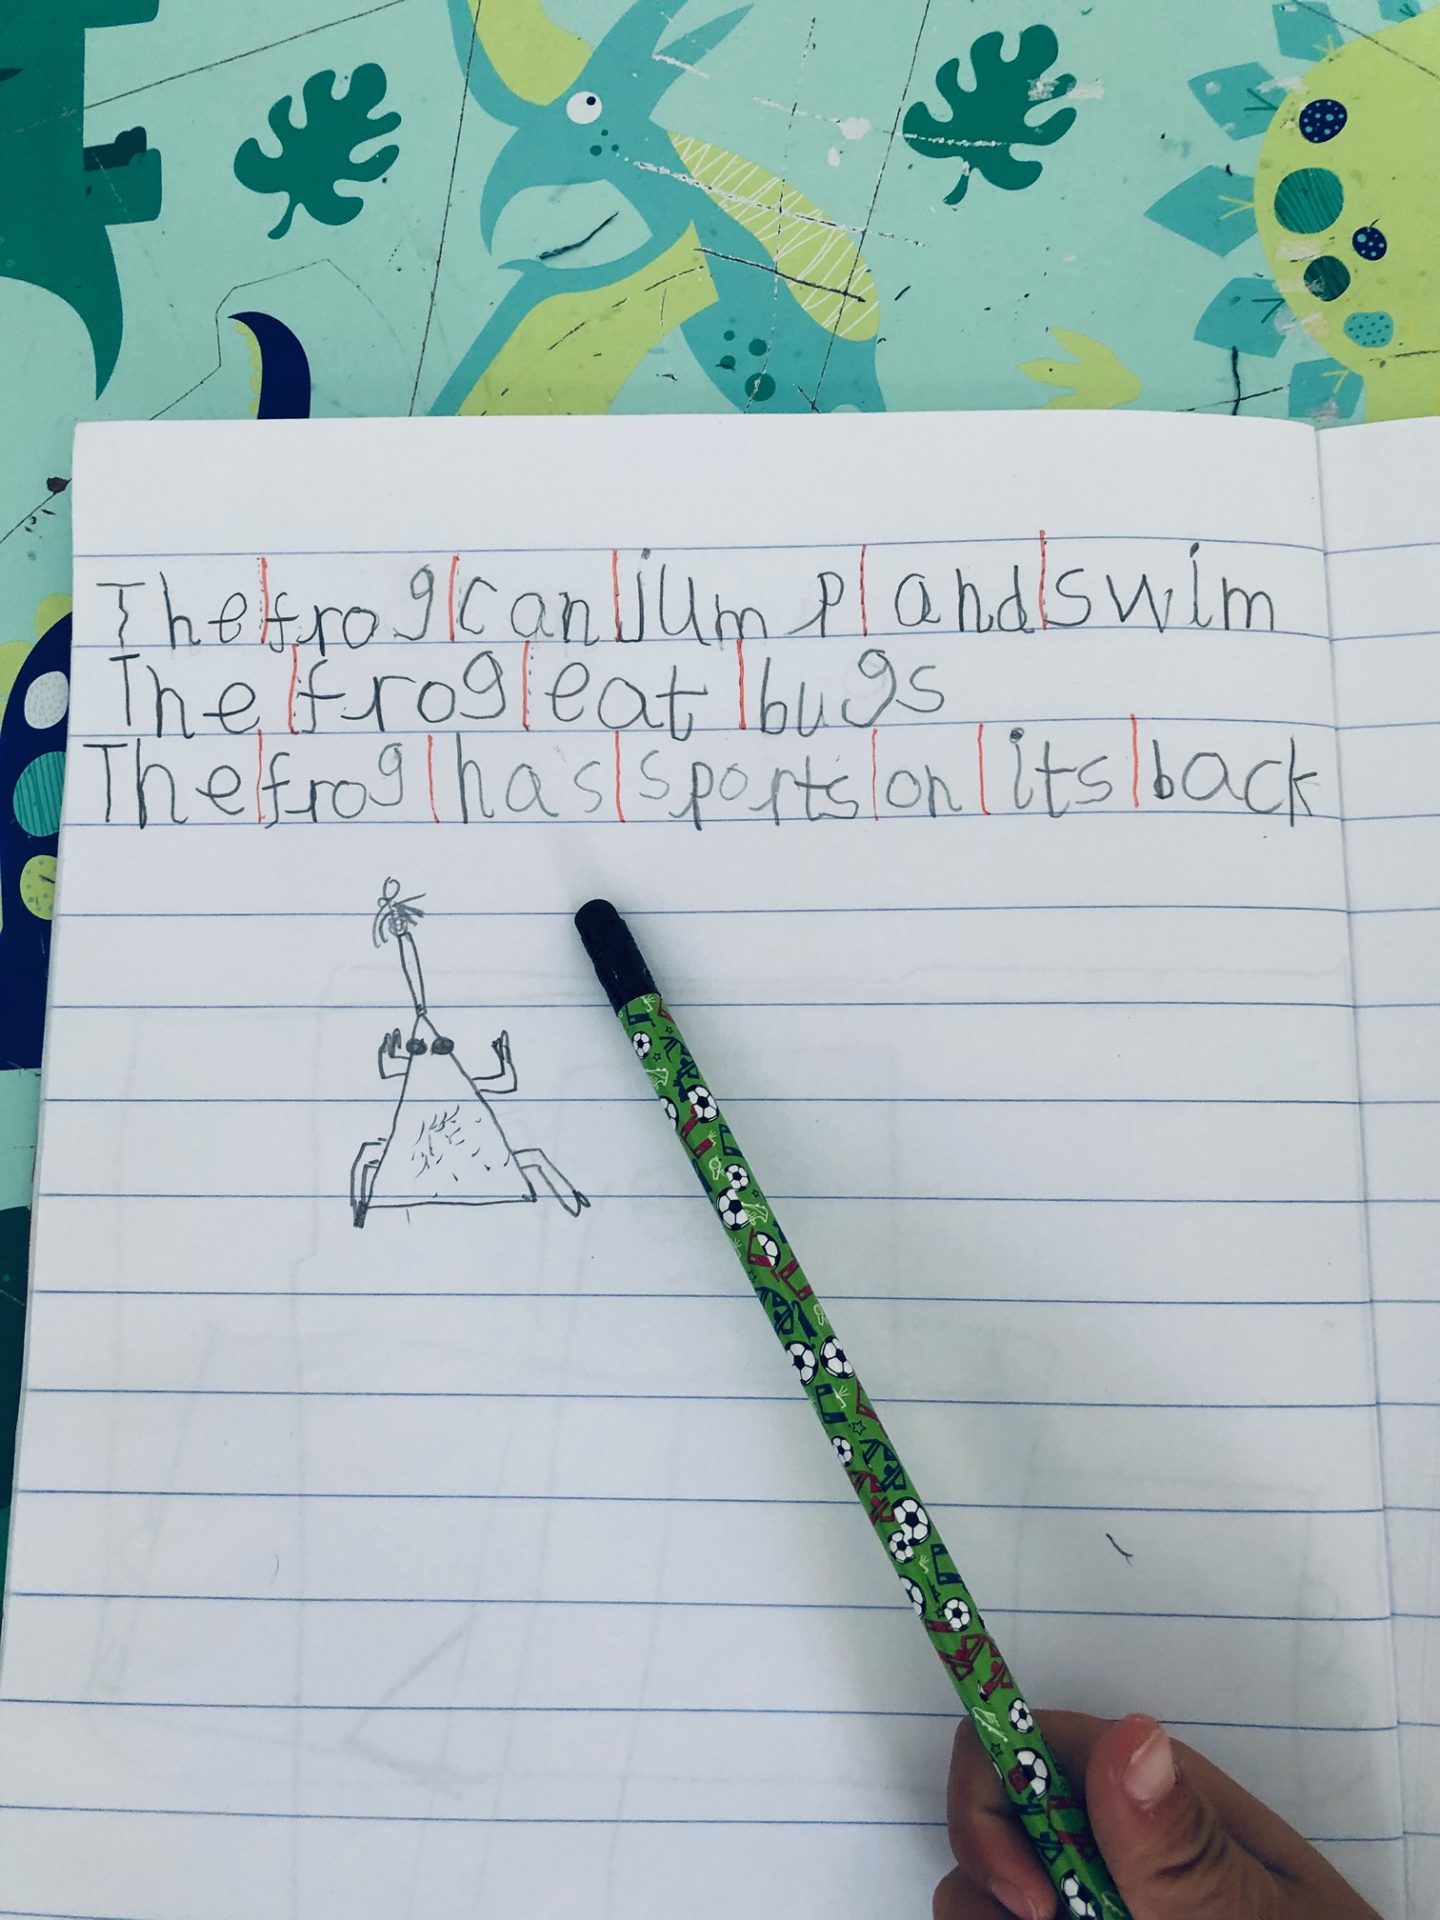 The frog can jump and swim
The frog eat bugs
The frog has sports on its back